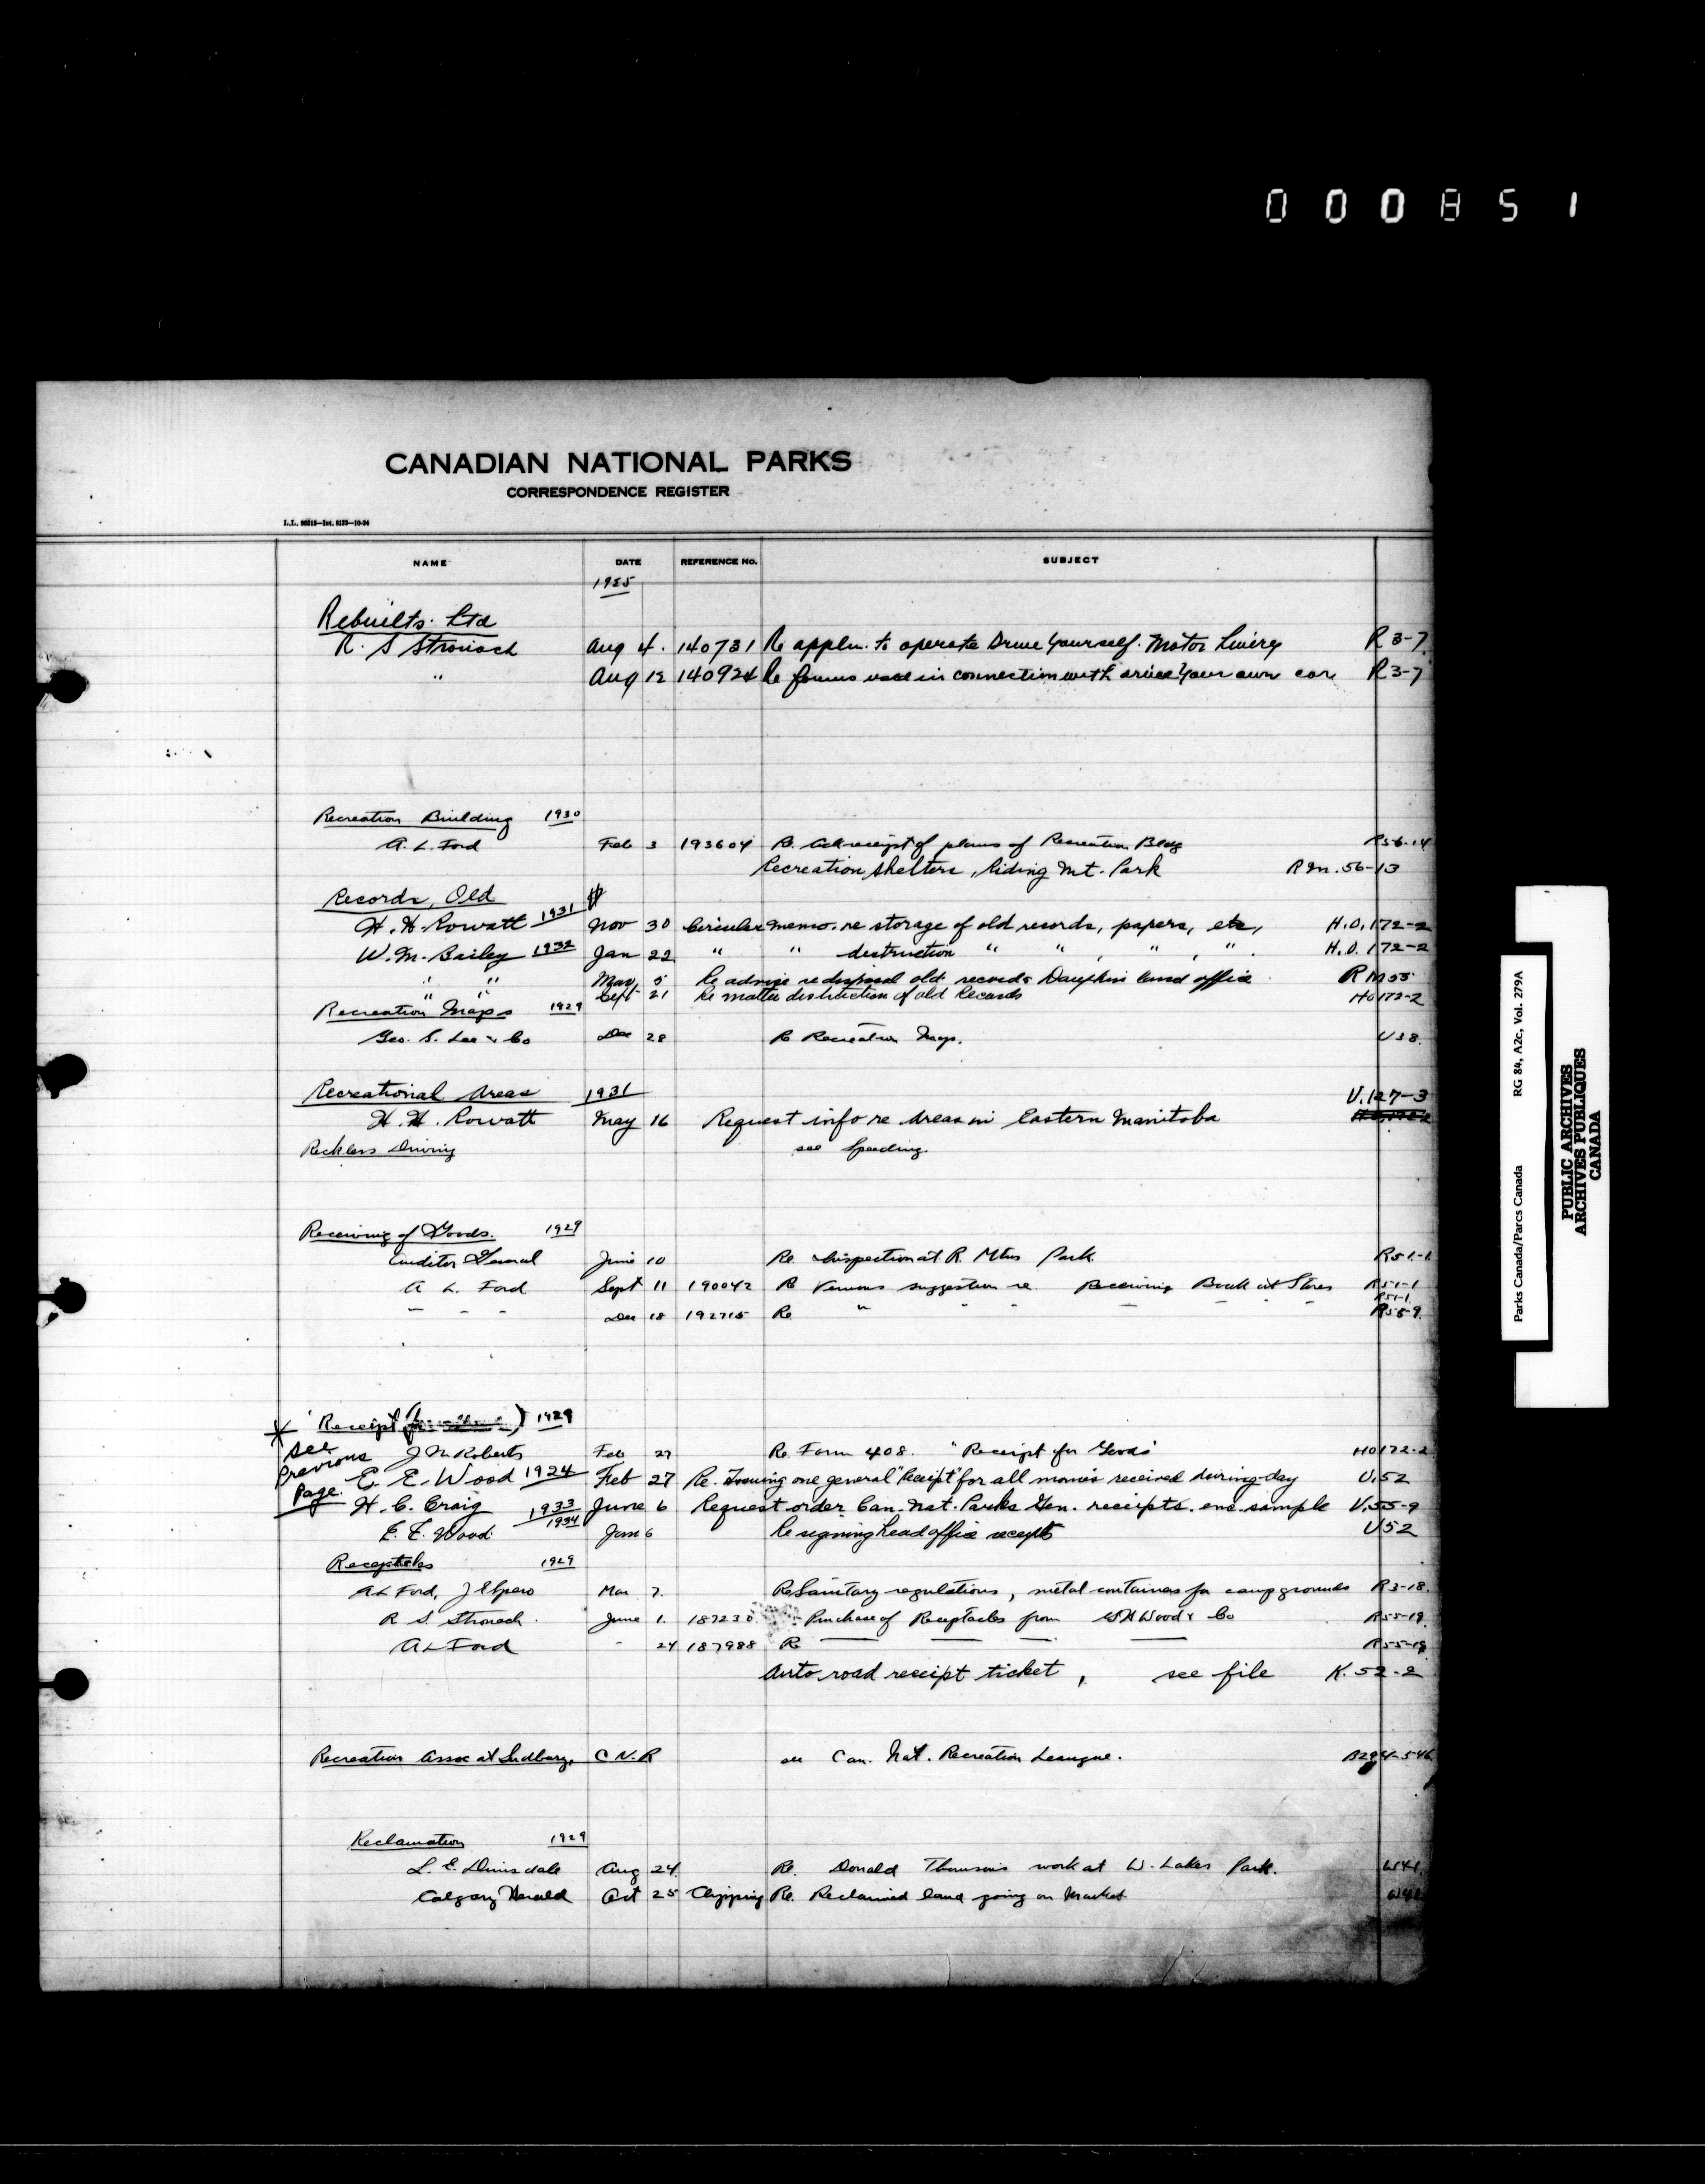 000851
CANADIAN NATIONAL PARKS
CORRESPONDENCE REGISTER
NAME DATE REFERENCE No. SUBJECT
Rebuilts Ltd
R. S Stronach Aug 4. 140731 Re applen. to operate Drive Yourself. Motor Livery R 3-7
" Aug 12 140924 Re forms used in connection with drive Your own car R 3-7
Recreation Building 1930
A. L. Ford Feb 3 193604 Re. Ack receipt of plans of Recreation Bldg R56-14
Recreation Shelters, Riding Mt. Park R M. 56-13
Records, Old
H. H. Rowatt 1931 Nov 30 Circular memo. re storage of old records, papers, etc, H.O.172-2
W. M. Bailey 1932 Jan 22 " " destruction " " " " H.O.172-2
" " May 5 Re advise re disposal old records Dauphin land office RM55
" " Sept 21 Re matter distruction of old Records HO172-2
Recreation Maps 1929
Geo. S. Lee & Co Dec 28 Re Recreation Map. U38.
Recreational Areas 1931 U.127-3
H. H. Rowatt May 16 Request info re Areas in Eastern Manitoba
Reckless Driving see Speeding.
Receiving of Goods. 1929
Auditor General June 10 Re Inspection at R. Mtns Park R51-1
A L. Ford Sept 11 190042 Re Various suggestion re. Receiving Book at Stores R51-1
R51-1
" " " Dec 18 192715 Re " " " R55-9
Receipt 1929
See Previous Page.
J M Roberts Feb 27 Re. Form 408. "Receipt for Goods" HO172-2
E. E. Wood 1924 Feb 27 Re. Issuing one general "Receipt" for all monies received during day U.52
H. C. Craig 1933 June 6 Request order Can. Nat. Parks Gen. receipts. enc. sample U.55-9
E. E. Wood. 1934 Jan 6 Re signing head office receipts U52
Receptacles 1929
A L Ford, J E Spero Mar 7. Re Sanitary regulations, metal containers for camp grounds R3-18.
R S. Stronach. June 1. 187230 Purchase of Receptacles from W H Wood & Co R55-19
A L Ford " 24 187988 Re R55-19
Auto road receipt ticket, see file K.52-2
Recreation Assoc at Sudbury, C N. R see Can. Nat. Recreation League.
Reclamation 1929
L. E. Dinsdale Aug 24. Re. Donald Thomson's work at W. Lakes Park.
Calgary Herald Oct 25 Clipping Re. Reclaimed land going on Market
Parks Canada/Parcs Canada RG 84, A2c, Vol. 279A
PUBLIC ARCHIVES
ARCHIVES PUBLIQUES
CANADA